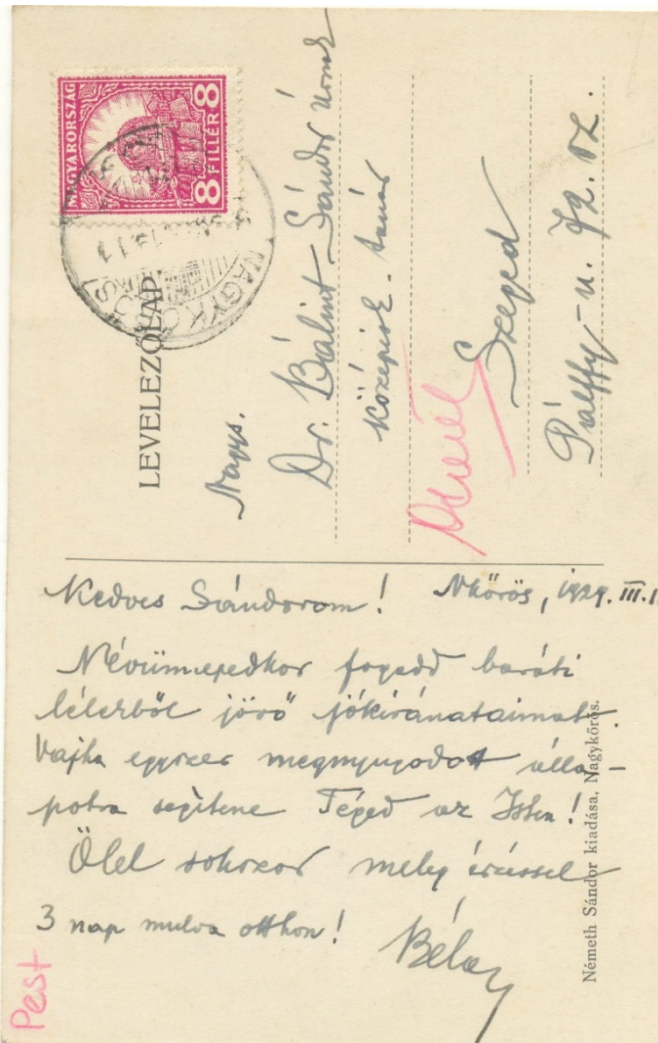 MAGYARORSZÁG
8 FILLÉR 8
NAGYKŐRÖS
LEVELEZŐLAP
Nagys.
Dr. Bálint Sándor úrnak
középisk. tanár
Szeged
Pálffy-u. 72. sz.
Kedves Sándorom! Nkőrös, 1929. III.
Névünnepedkor fogadd baráti
lélekből jövő jókivánataimat.
Vajha egyszer megnyugodott álla-
potra segítene Téged az Isten!
Ölel sokszor meleg érzéssel
3 nap mulva otthon!
Béla
Pest
Németh Sándor kiadása, Nagykőrös.